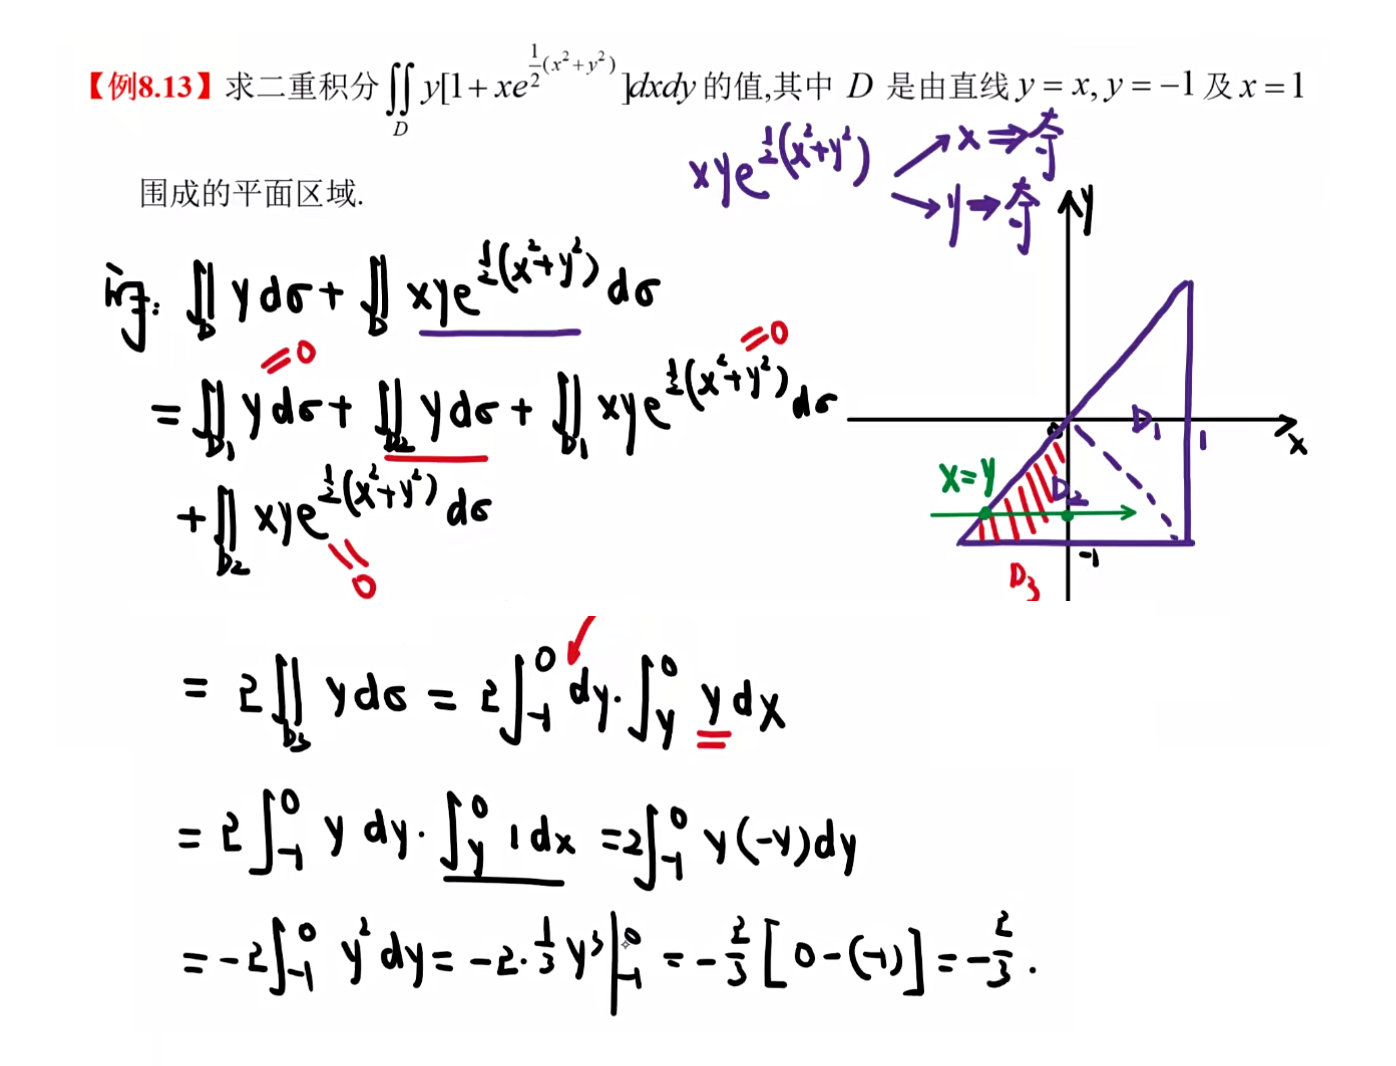 【例8.13】求二重积分∬_D y[1+xe^{\frac{1}{2}(x²+y²)}]dxdy的值,其中 D 是由直线 y=x, y=−1 及 x=1
围成的平面区域.
xye^{\frac{1}{2}(x²+y²)} ↗ x ⇒ 奇
↘ y ⇒ 奇
y
∬_D ydσ + ∬_D xye^{\frac{1}{2}(x²+y²)} dσ
=0 =0
= ∬_{D₁} ydσ + ∬_{D₂} ydσ + ∬_{D₁} xye^{\frac{1}{2}(x²+y²)} dσ
+ ∬_{D₂} xye^{\frac{1}{2}(x²+y²)} dσ
=0
0 D₁ 1 x
x=y D₂
-1
D₃
= 2∬_{D₃} ydσ = 2∫_{-1}^{0} dy·∫_{y}^{0} y dx
= 2∫_{-1}^{0} y dy·∫_{y}^{0} 1dx = 2∫_{-1}^{0} y(-y)dy
= -2∫_{-1}^{0} y² dy = -2·\frac{1}{3} y³ |_{-1}^{0} = -\frac{2}{3}[0-(-1)] = -\frac{2}{3}.